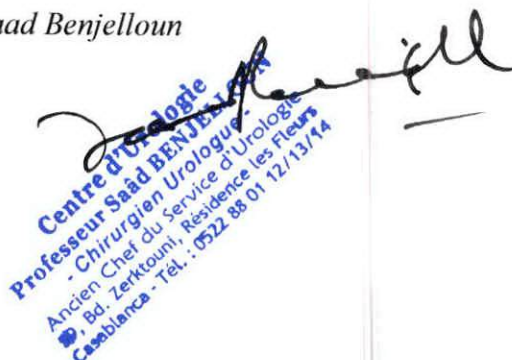 aad Benjelloun
Centre d'Urologie
Professeur Saâd BENJELLOUN
- Chirurgien Urologue -
Ancien Chef du Service d'Urologie
Bd. Zerktouni, Résidence les Fleurs
Casablanca - Tél. : 0522 88 01 12/13/14